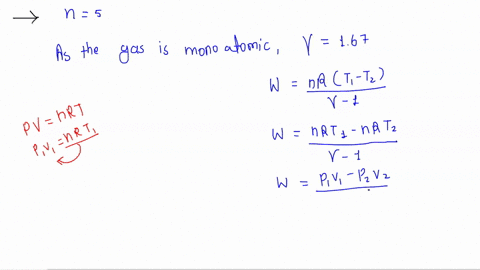 → n = 5
As the gas is monoatomic, γ = 1.67
W = nR (T₁-T₂) / γ-1
PV = nRT
P₁V₁ = nRT₁
W = nRT₁ - nRT₂ / γ-1
W = P₁V₁ - P₂V₂